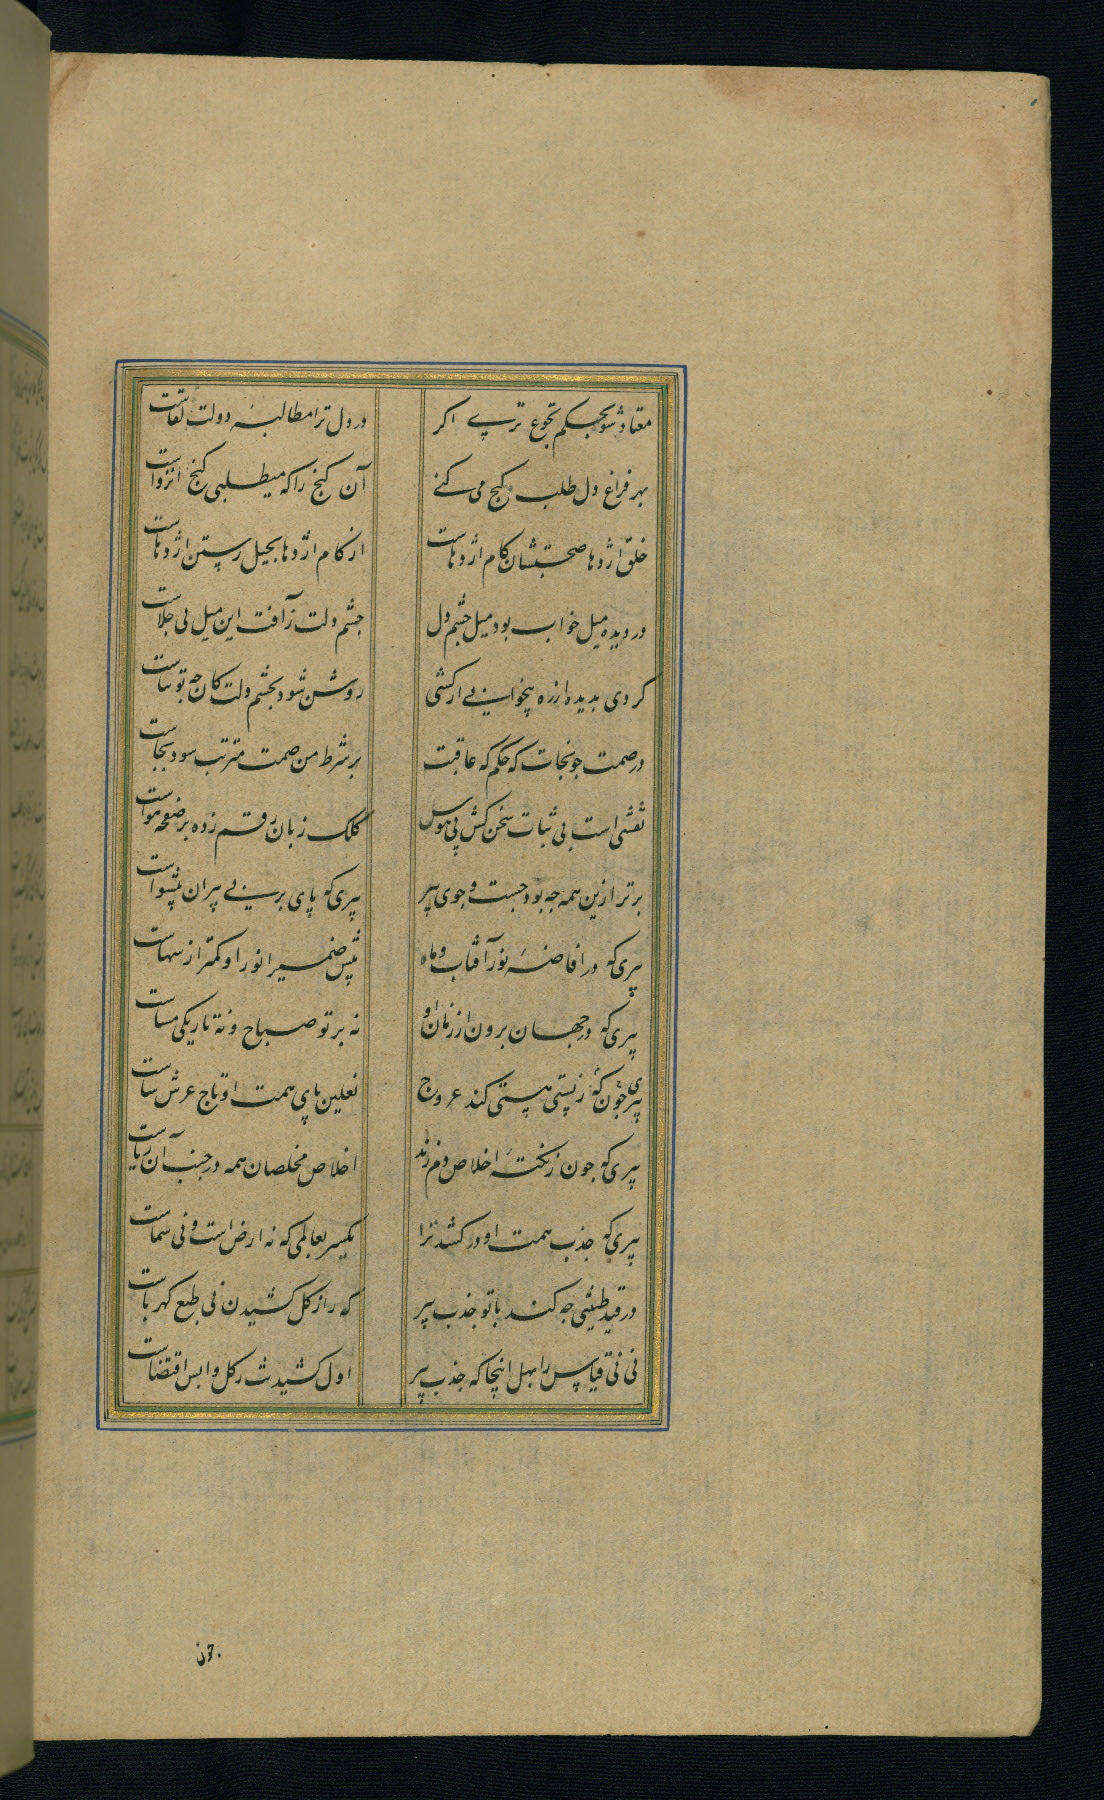 معتاد شو بحکم تجوع ترپی اگر در دل ترا مطالبهٔ دولت لقاست
بهر فراغ دل طلب گنج می کنے آن گنج را که میطلبی کنج انزواست
خلق اژدها صحبتشان کام اژدهاست از کام اژدها بحیل رستن اژدهاست
در دیده میل خواب بود میل چشم دل چشم دلت ز آفت این میل بی جلاست
کردی بدیده از ره بیخوابی ار کشی روشن شود بچشم دلت کان چه توتیاست
در صمت جو نجات که حکم که عاقبت بر شرط من صمت مترتب سود نجاست
نقشی است بی ثبات سخن کش پی هوس کلک زبان رقم زده بر صفحه هواست
برتر ازین همه چه بود جست و جوی پیر پیری که پای بر پی پیران پیشواست
پیری که در افاضهٔ نور آفتاب و ماه پیش ضمیر انور او کمتر از سهاست
پیری که در جهان برون از زمان او نه پرتو صباح و نه تاریکی مساست
پیری که چون ز پستی هستی کند عروج نعلین پای همت او تاج عرش ساست
پیری که چون ز نکتهٔ اخلاص دم زند اخلاص مخلصان همه در جنب آن ریاست
پیری که جذب همت او در کشد ترا یکسر بعالمی که نه ارض است و نی سماست
در قید طینتی چه کند با تو جذب پیر که را ز گل کشیدن نی طبع کهرباست
نی نی قیاس را بهل اینجا که جذب پیر اول کشیدنت ز گل و ابس اقتضاست